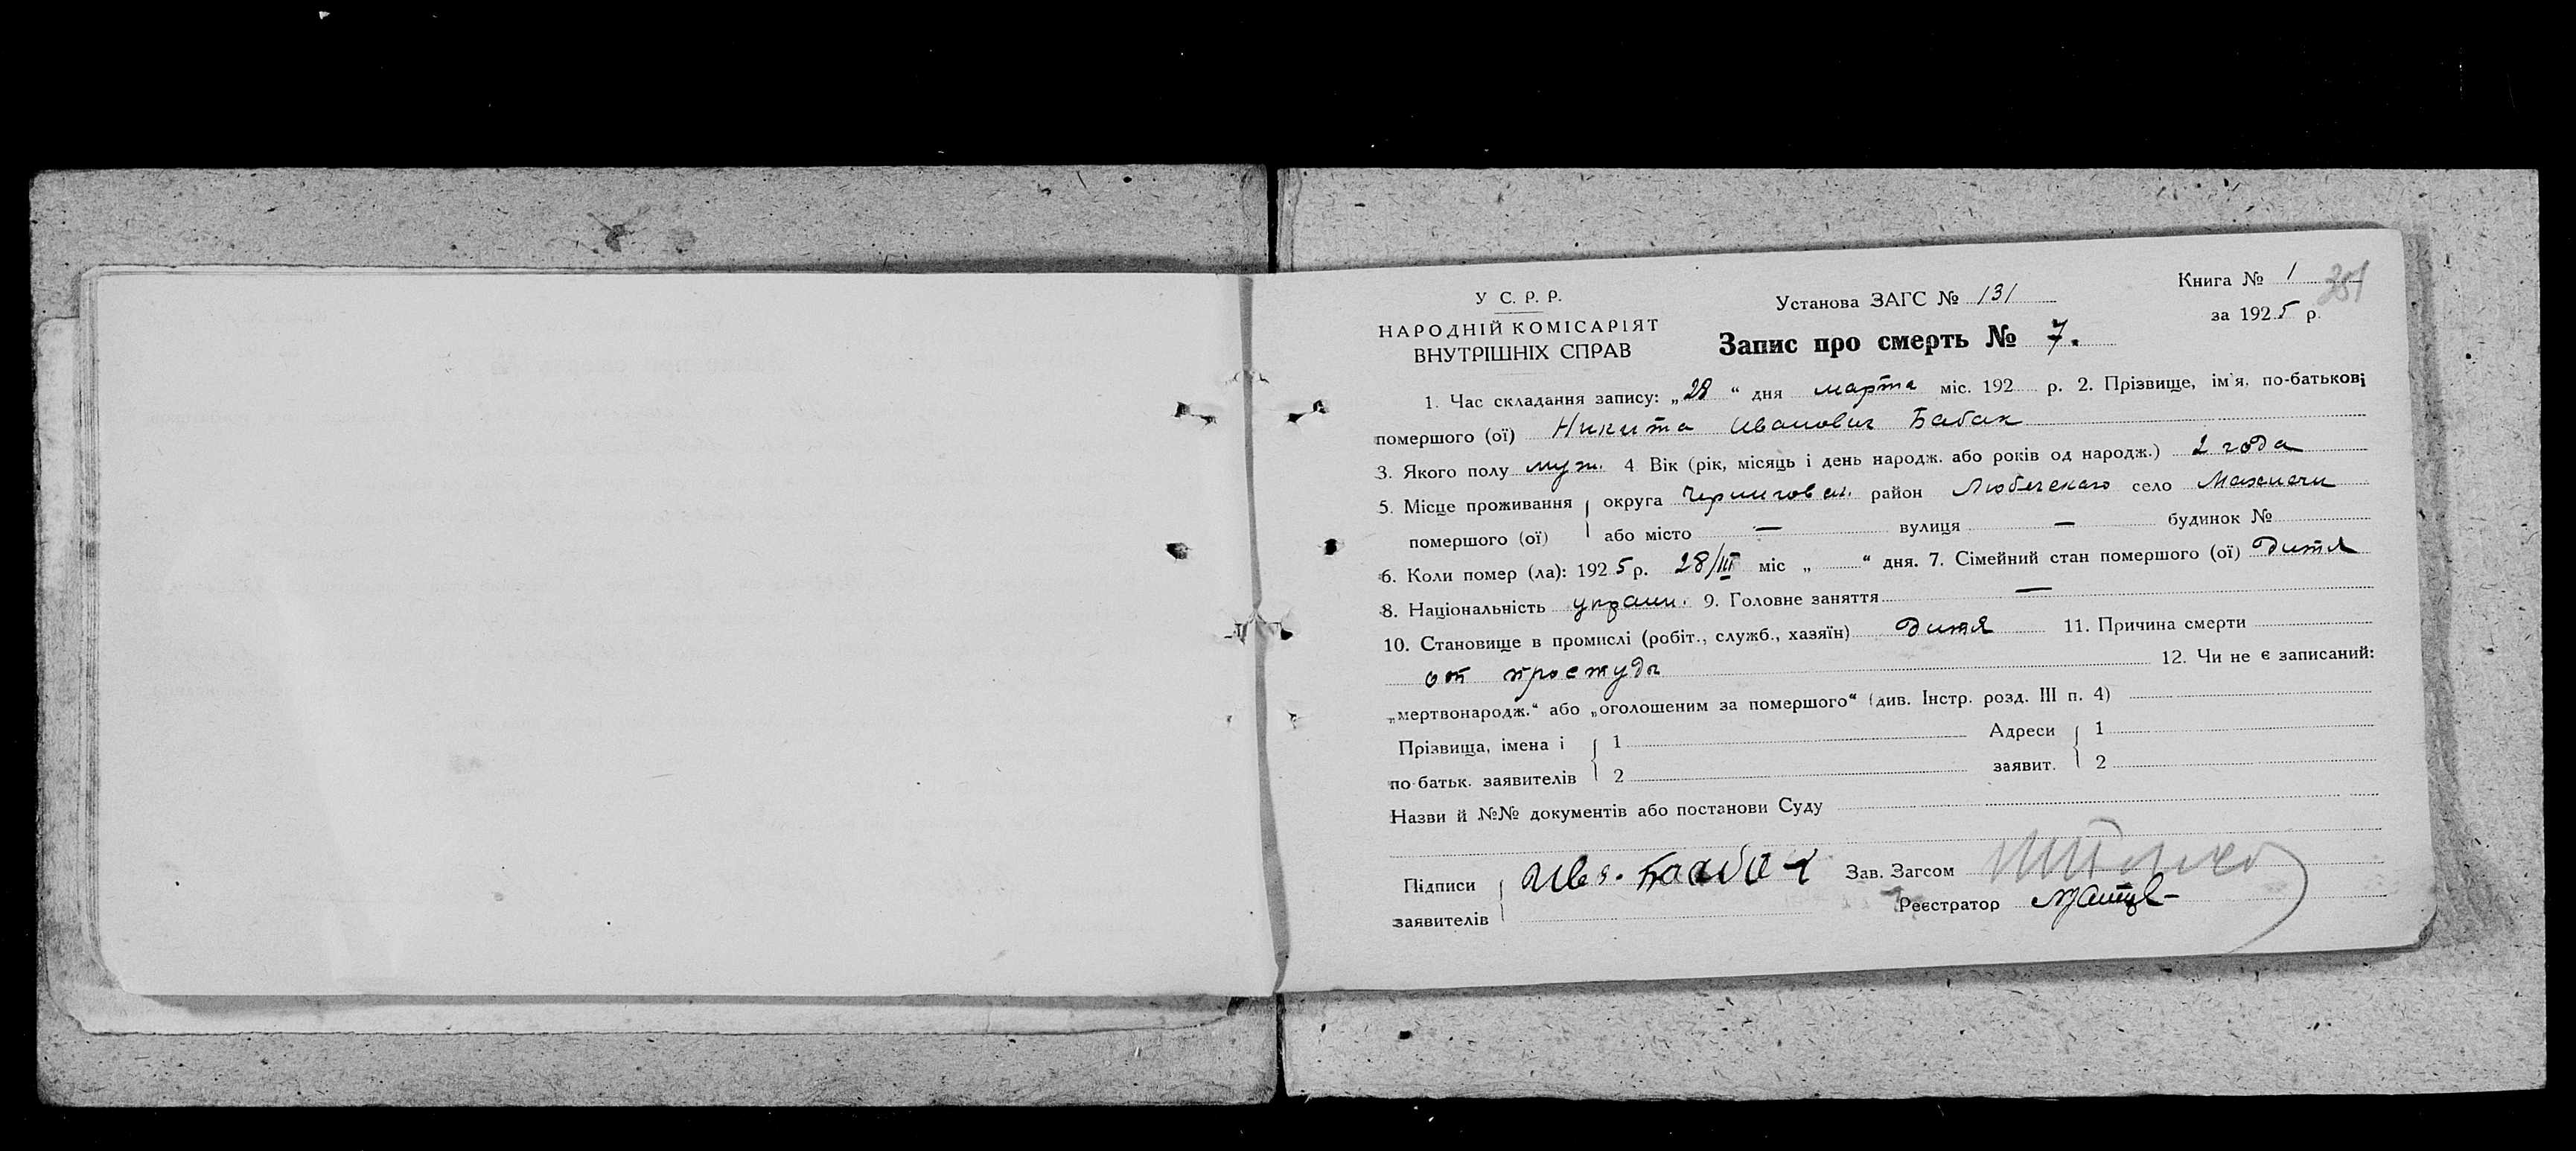 У С. Р. Р.
НАРОДНІЙ КОМІСАРІЯТ
ВНУТРІШНІХ СПРАВ
Установа ЗАГС № 131
Запис про смерть № 7.
Книга № 1
за 1925 р.
351
1. Час складання запису: „28“ дня марта міс. 192 р. 2. Прізвище, ім'я, по-батькові
помершого (ої) Никита Иванович Бабак
3. Якого полу муж. 4 Вік (рік, місяць і день народж. або років од народж.) 2 года
5. Місце проживання округа Черниговск. район Любечскаго село Махначи
помершого (ої) або місто — вулиця — будинок №
6. Коли помер (ла): 1925 р. 28/III міс „ “ дня. 7. Сімейний стан помершого (ої) дитя
8. Національність украин. 9. Головне заняття —
10. Становище в промислі (робіт., служб., хазяїн) дитя 11. Причина смерти
от простуды 12. Чи не є записаний:
„мертвонародж.“ або „оголошеним за помершого“ (див. Інстр. розд. III п. 4)
Прізвища, імена і 1 Адреси 1
по батьк. заявителів 2 заявит. 2
Назви й №№ документів або постанови Суду
Підписи Зав. Загсом
заявителів Реєстратор